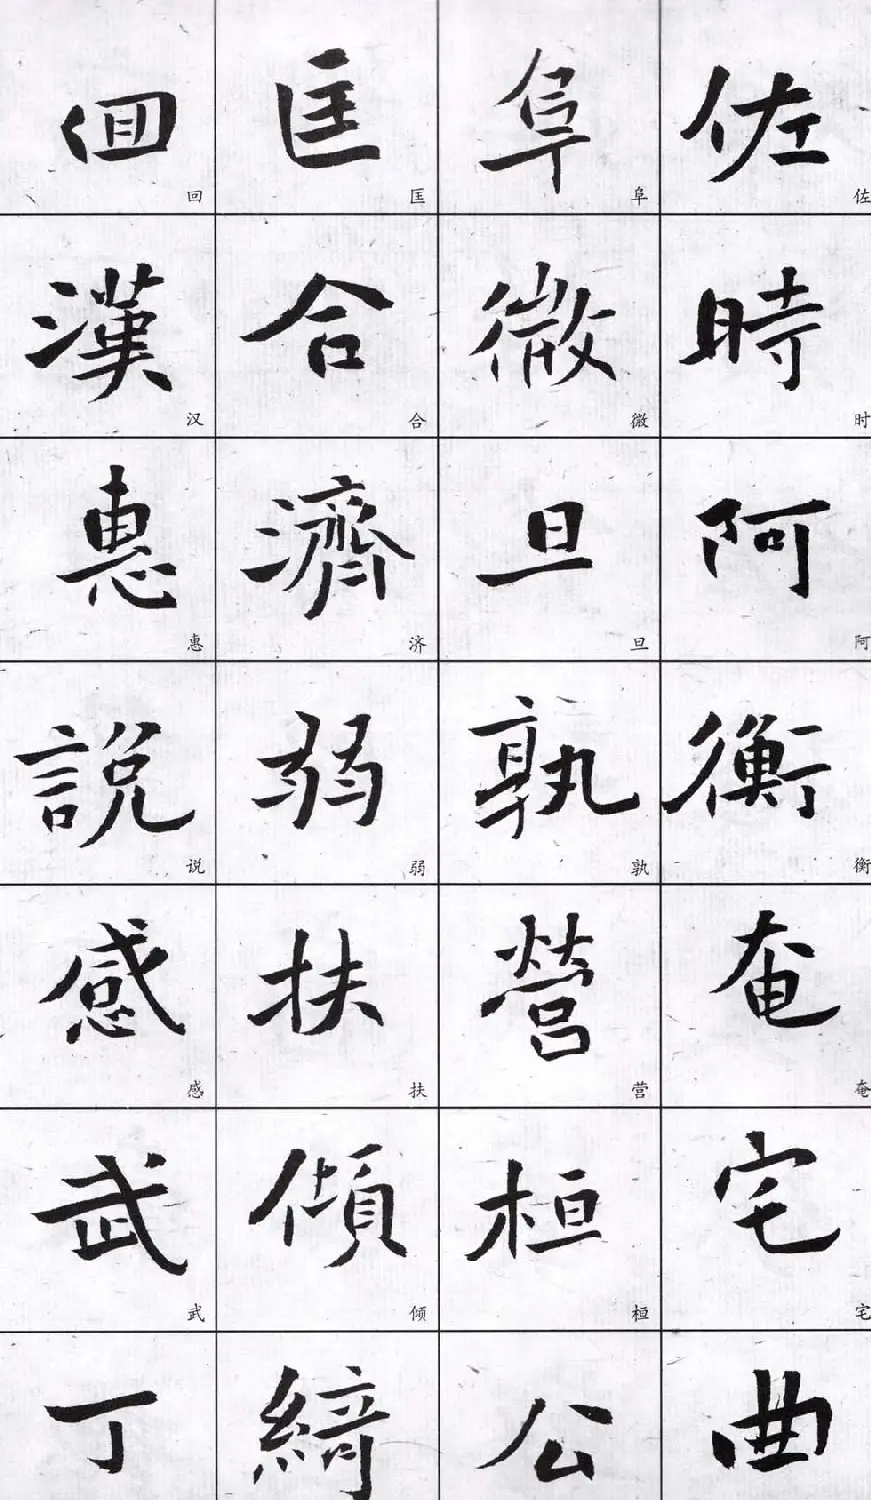 佐時阿衡奄宅曲
佐时阿衡奄宅
阜微旦孰營桓公
阜微旦孰营桓
匡合濟弱扶傾綺
匡合济弱扶倾
回漢惠說感武丁
回汉惠说感武